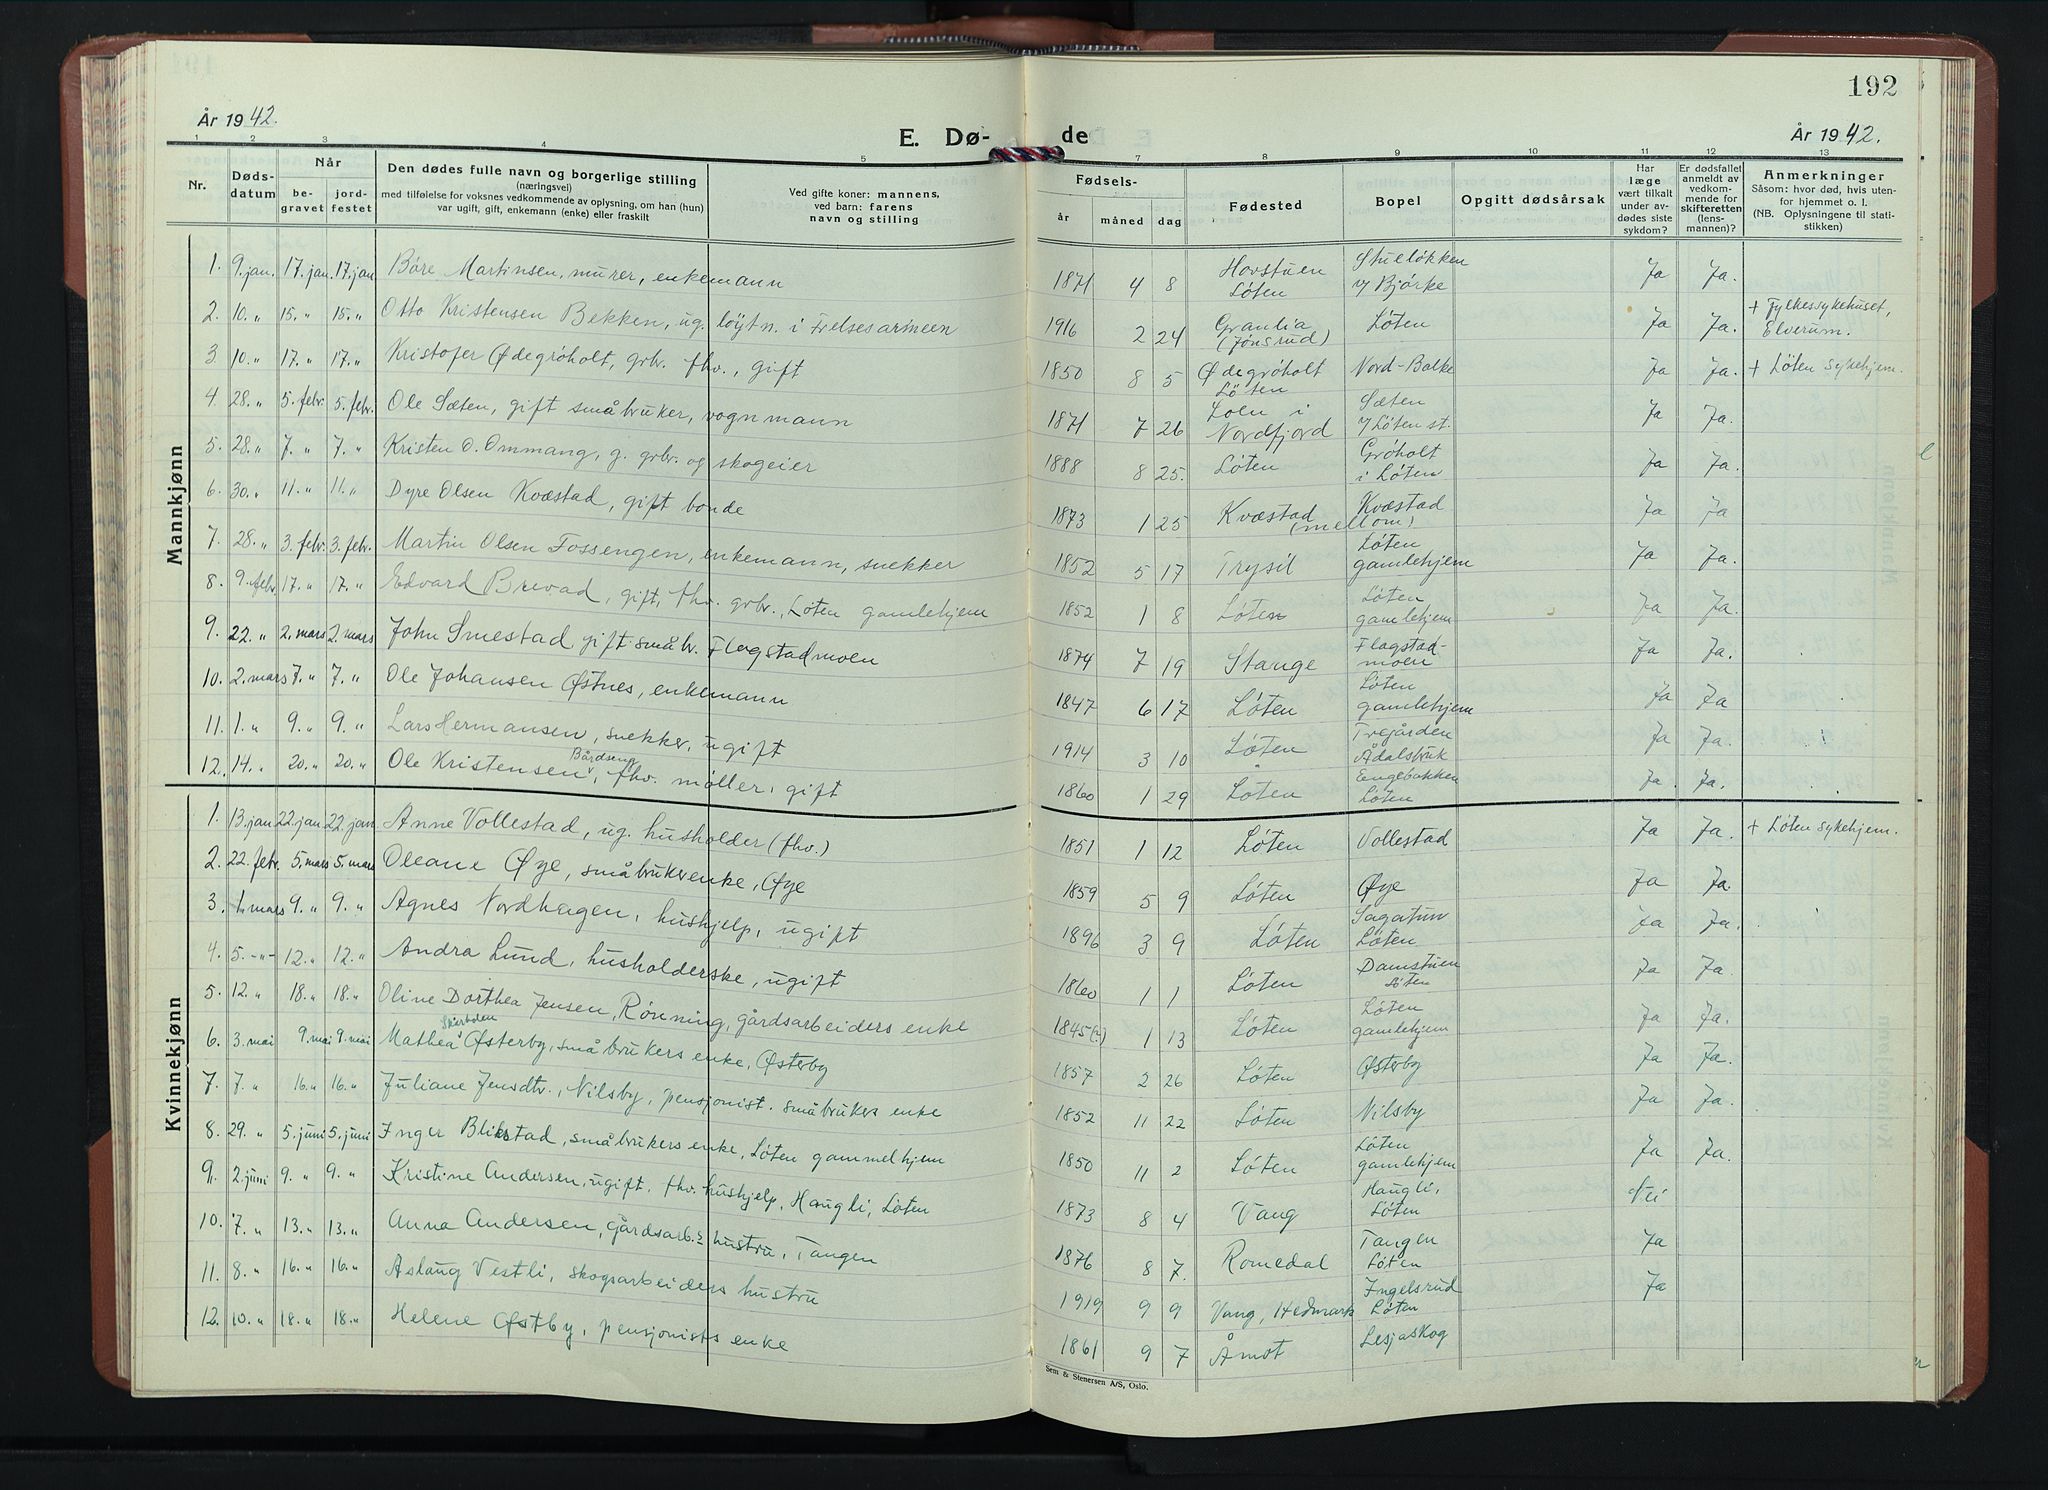 192
År 1942.
E. Dø-
de
År 1942.
1 2 3 4 5 7 8 9 10 11 12 13
Nr.
Døds-
datum
Når
be-
gravet
jord-
festet
Den dødes fulle navn og borgerlige stilling
(næringsvei)
med tilføielse for voksnes vedkommende av oplysning, om han (hun)
var ugift, gift, enkemann (enke) eller fraskilt
Ved gifte koner: mannens,
ved barn: farens
navn og stilling
Fødsels-
år måned dag
Fødested
Bopel
Opgitt dødsårsak
Har
læge
vært tilkalt
under av-
dødes siste
sykdom?
Er dødsfallet
anmeldt av
vedkom-
mende for
skifteretten
(lens-
mannen)?
Anmerkninger
Såsom: hvor død, hvis uten-
for hjemmet o. l.
(NB. Oplysningene til stati-
stikken)
Mannkjønn
1. 9. jan. 17. jan. 17. jan Børe Martinsen, murer, enkemann 1871 4 8 Hovstuen Løten Stueløkken Bjørke Ja Ja.
2. 10. „ 15. „ 15. „ Otto Kristensen Bekken, ug. løytn. i Frelsesarmeen 1916 2 24 Granlia (Jønsrud) Løten Ja Ja. + Fylkessykehuset, Elverum.
3. 10. „ 17. „ 17. „ Kristofer Ødegróholt, grbr. fhv., gift 1850 8 5 Ødegróholt Løten Nord-Balke Ja Ja. + Løten sykehjem.
4. 28. „ 5. febr. 5. febr. Ole Sæten, gift småbruker, vognmann 1871 7 26 Loen i Nordfjord Sæten Løten st. Ja Ja.
5. 28. „ 7. „ 7. „ Kristen O. Ommang, g. grbr. og skogeier 1888 8 25. Løten Gróholt i Løten Ja Ja.
6. 30. „ 11. „ 11. „ Dyre Olsen Kvæstad, gift bonde 1873 1 25 Kvæstad (mellom) Kvæstad Ja Ja
7. 28. „ 3. febr. 3. febr. Martin Olsen Fossengen, enkemann, snekker 1852 5 17 Trysil Løten gamlehjem Ja Ja.
8. 9. febr. 17. „ 17. „ Edvard Brevad, gift, fhv. grbr., Løten gamlehjem 1852 1 8 Løten Løten gamlehjem Ja Ja.
9. 22. „ 2. mars 2. mars John Smestad gift småbr. Flagstadmoen 1874 7 19 Stange Flagstad-moen Ja Ja.
10. 2. mars 7. „ 7. „ Ole Johansen Østnes, enkemann 1847 6 17 Løten Løten gamlehjem Ja Ja
11. 1. „ 9. „ 9. „ Lars Hermansen, snekker, ugift 1914 3 10 Løten Tregården Ådalsbruk Ja Ja.
12. 14. „ 20. „ 20. „ Ole Kristensen Bårdseng, fhv. møller, gift 1860 1 29 Løten Engebakken Løten Ja. Ja.
Kvinnekjønn
1. 13. jan 22. jan 22. jan Anne Vollestad, ug. husholder (fhv.) 1851 1 12 Løten Vollestad Ja Ja. + Løten sykehjem.
2. 22. febr. 5. mars 5. mars Oleane Øye, småbrukerenke, Øye 1859 5 9 Løten Øye Ja Ja.
3. 1. mars 9. „ 9. „ Agnes Nordhagen, hushjelp, ugift 1896 3 9 Løten Sagatun Løten Ja Ja.
4. 5. -„- 12. „ 12. „ Andra Lund, husholderske, ugift 1860 1 1 Løten Damstuen Løten Ja Ja.
5. 12. „ 18. „ 18. „ Oline Dorthea Jensen, Rønning, gårdsarbeiders enke 1845(?) 1 13 Løten Løten gamlehjem Ja Ja.
6. 3. mai 9. mai 9. mai Mathea Østerby, småbrukers enke, Østerby 1857 2 26 Løten Østerby Ja Ja.
7. 7. „ 16. „ 16. „ Juliane Jensdtr., Nilsby, pensjonist. småbrukers enke 1852 11 22 Løten Nilsby Ja Ja.
8. 29. „ 5. juni 5. juni Inger Blikstad, småbrukers enke, Løten gammelhjem 1850 11 2 Løten Løten gamlehjem Ja Ja.
9. 2. juni 9. „ 9. „ Kristine Andersen, ugift, fhv. hushjelp, Haugli, Løten 1873 8 4 Vang Haugli, Løten Nei
10. 7. „ 13. „ 13. „ Anna Andersen, gårdsarb.s hustru, Tangen 1876 8 7. Romedal Tangen Løten Ja
11. 8. „ 16. „ 16. „ Aslaug Vestli, skogsarbeiders hustru 1919 9 9 Vang, Hedmark Ingelsrud Løten Ja
12. 10. „ 18. „ 18. „ Helene Østby, pensjonists enke 1861 9 7 Åmot Lesjaskog
Sem & Stenersen A/S, Oslo.